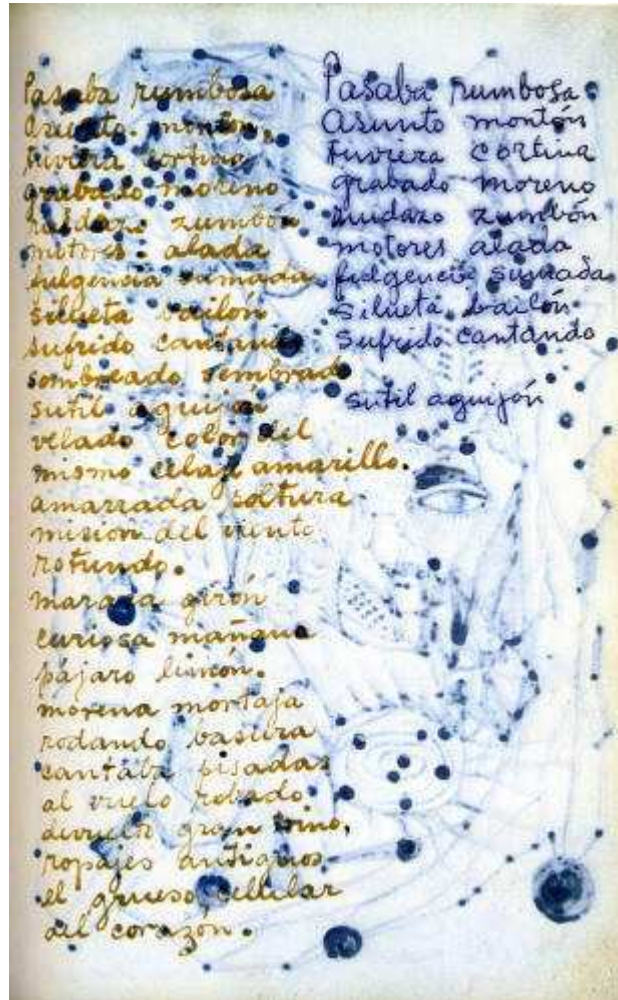 Pasaba rumbosa
Asunto. montón.
tuviera cortina
grabado moreno
zumbón
motores. alada
fulgencia sumada
silueta bailón
sufrido cantando
sombreado sembrado
sutil aguijón
velado color del
mismo celaje amarillo.
amarrada soltura
mision del viento
rotundo.
maraña girón
curiosa mañana
pájaro limón.
morena mortaja
rodando basura
cantaba pisadas
al vuelo robado
gran trino.
ropajes antiguos
el grueso cellular
del corazón.
Pasaba rumbosa
Asunto montón
tuviera cortina
grabado moreno
zumbón
motores alada
fulgencia sumada
Silueta bailón
Sufrido cantando
sutil aguijón